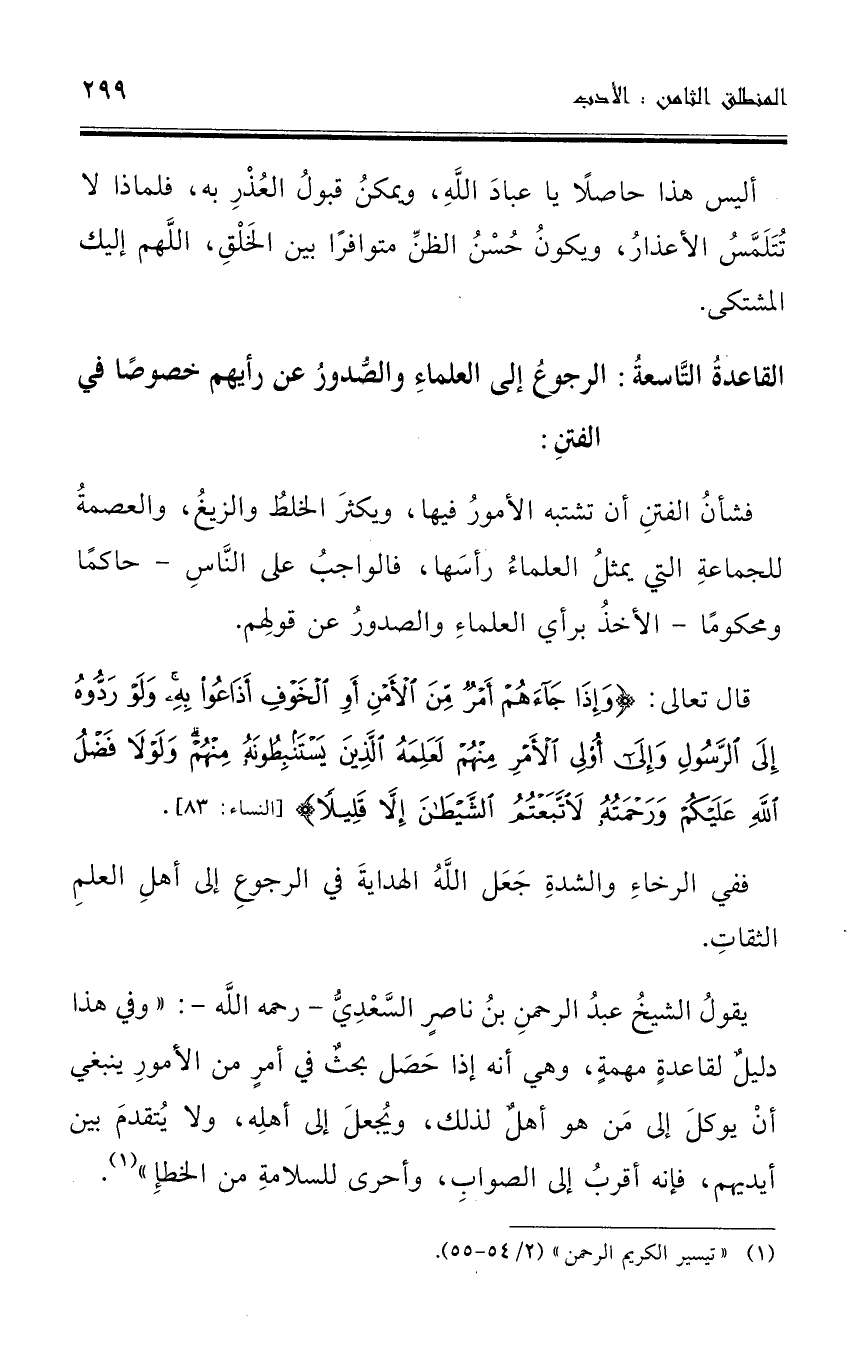 المنطلق الثامن : الأدب ٢٩٩
أليس هذا حاصلًا يا عبادَ اللَّهِ، ويمكنُ قبولُ العُذْرِ به، فلماذا لا
تُتَلَمَّسُ الأعذارُ، ويكونُ حُسْنُ الظنِّ متوافرًا بين الخَلْقِ، اللَّهم إليك
المشتكى.
القاعدةُ التَّاسعةُ : الرجوعُ إلى العلماءِ والصُّدورُ عن رأيهم خصوصًا في
الفتنِ :
فشأنُ الفتنِ أن تشتبه الأمورُ فيها، ويكثرَ الخلطُ والزيغُ، والعصمةُ
للجماعةِ التي يمثلُ العلماءُ رأسَها، فالواجبُ على النَّاسِ - حاكمًا
ومحكومًا - الأخذُ برأي العلماءِ والصدورُ عن قولِهم.
قال تعالى: ﴿وَإِذَا جَآءَهُمۡ أَمۡرٞ مِّنَ ٱلۡأَمۡنِ أَوِ ٱلۡخَوۡفِ أَذَاعُواْ بِهِۦۖ وَلَوۡ رَدُّوهُ
إِلَى ٱلرَّسُولِ وَإِلَىٰٓ أُوْلِي ٱلۡأَمۡرِ مِنۡهُمۡ لَعَلِمَهُ ٱلَّذِينَ يَسۡتَنۢبِطُونَهُۥ مِنۡهُمۡۗ وَلَوۡلَا فَضۡلُ
ٱللَّهِ عَلَيۡكُمۡ وَرَحۡمَتُهُۥ لَٱتَّبَعۡتُمُ ٱلشَّيۡطَٰنَ إِلَّا قَلِيلًا﴾ [النساء: ٨٣].
ففي الرخاءِ والشدةِ جَعَل اللَّهُ الهدايةَ في الرجوعِ إلى أهلِ العلمِ
الثقاتِ.
يقولُ الشيخُ عبدُ الرحمنِ بنُ ناصرٍ السَّعْدِيُّ - رحمه اللَّه -: «وفي هذا
دليلٌ لقاعدةٍ مهمةٍ، وهي أنه إذا حَصَل بحثٌ في أمرٍ من الأمورِ ينبغي
أنْ يوكلَ إلى مَن هو أهلٌ لذلك، ويُجعلَ إلى أهلِه، ولا يُتقدمَ بين
أيديهم، فإنه أقربُ إلى الصوابِ، وأحرى للسلامةِ من الخطإِ»(١).
(١) «تيسير الكريم الرحمن» (٢/ ٥٤-٥٥).